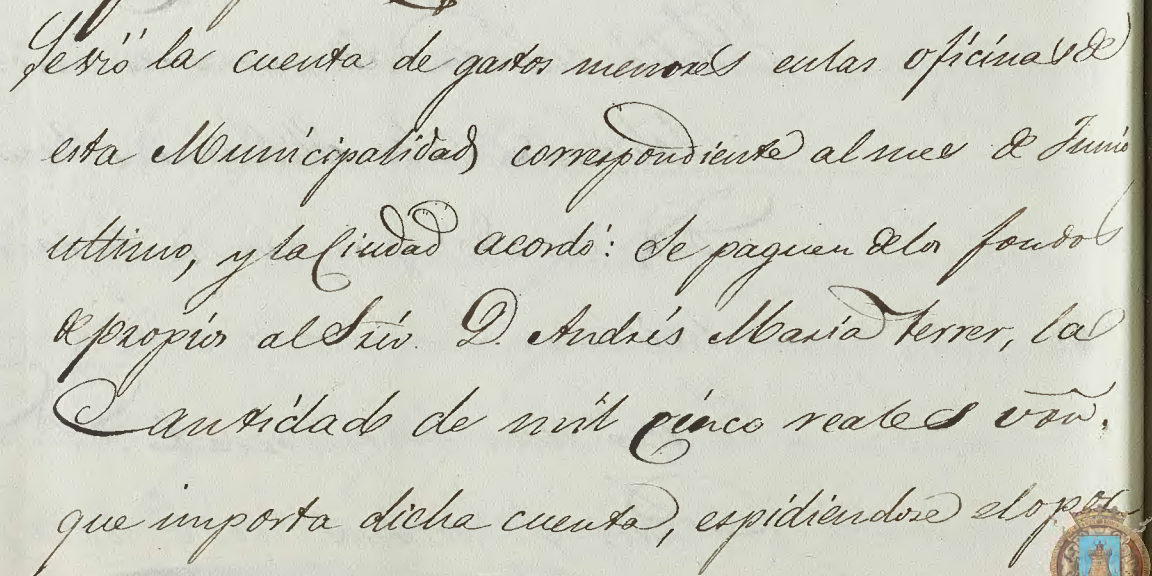 Se vió la cuenta de gastos menores en las oficinas de
esta Municipalidad correspondiente al mes de Junio
ultimo, y la Ciudad acordó: Se paguen de los fondos
de propios al Srio. D. Andrés María Ferrer, la
Cantidad de mil cinco reales von.
que importa dicha cuenta, espidiendose el opor